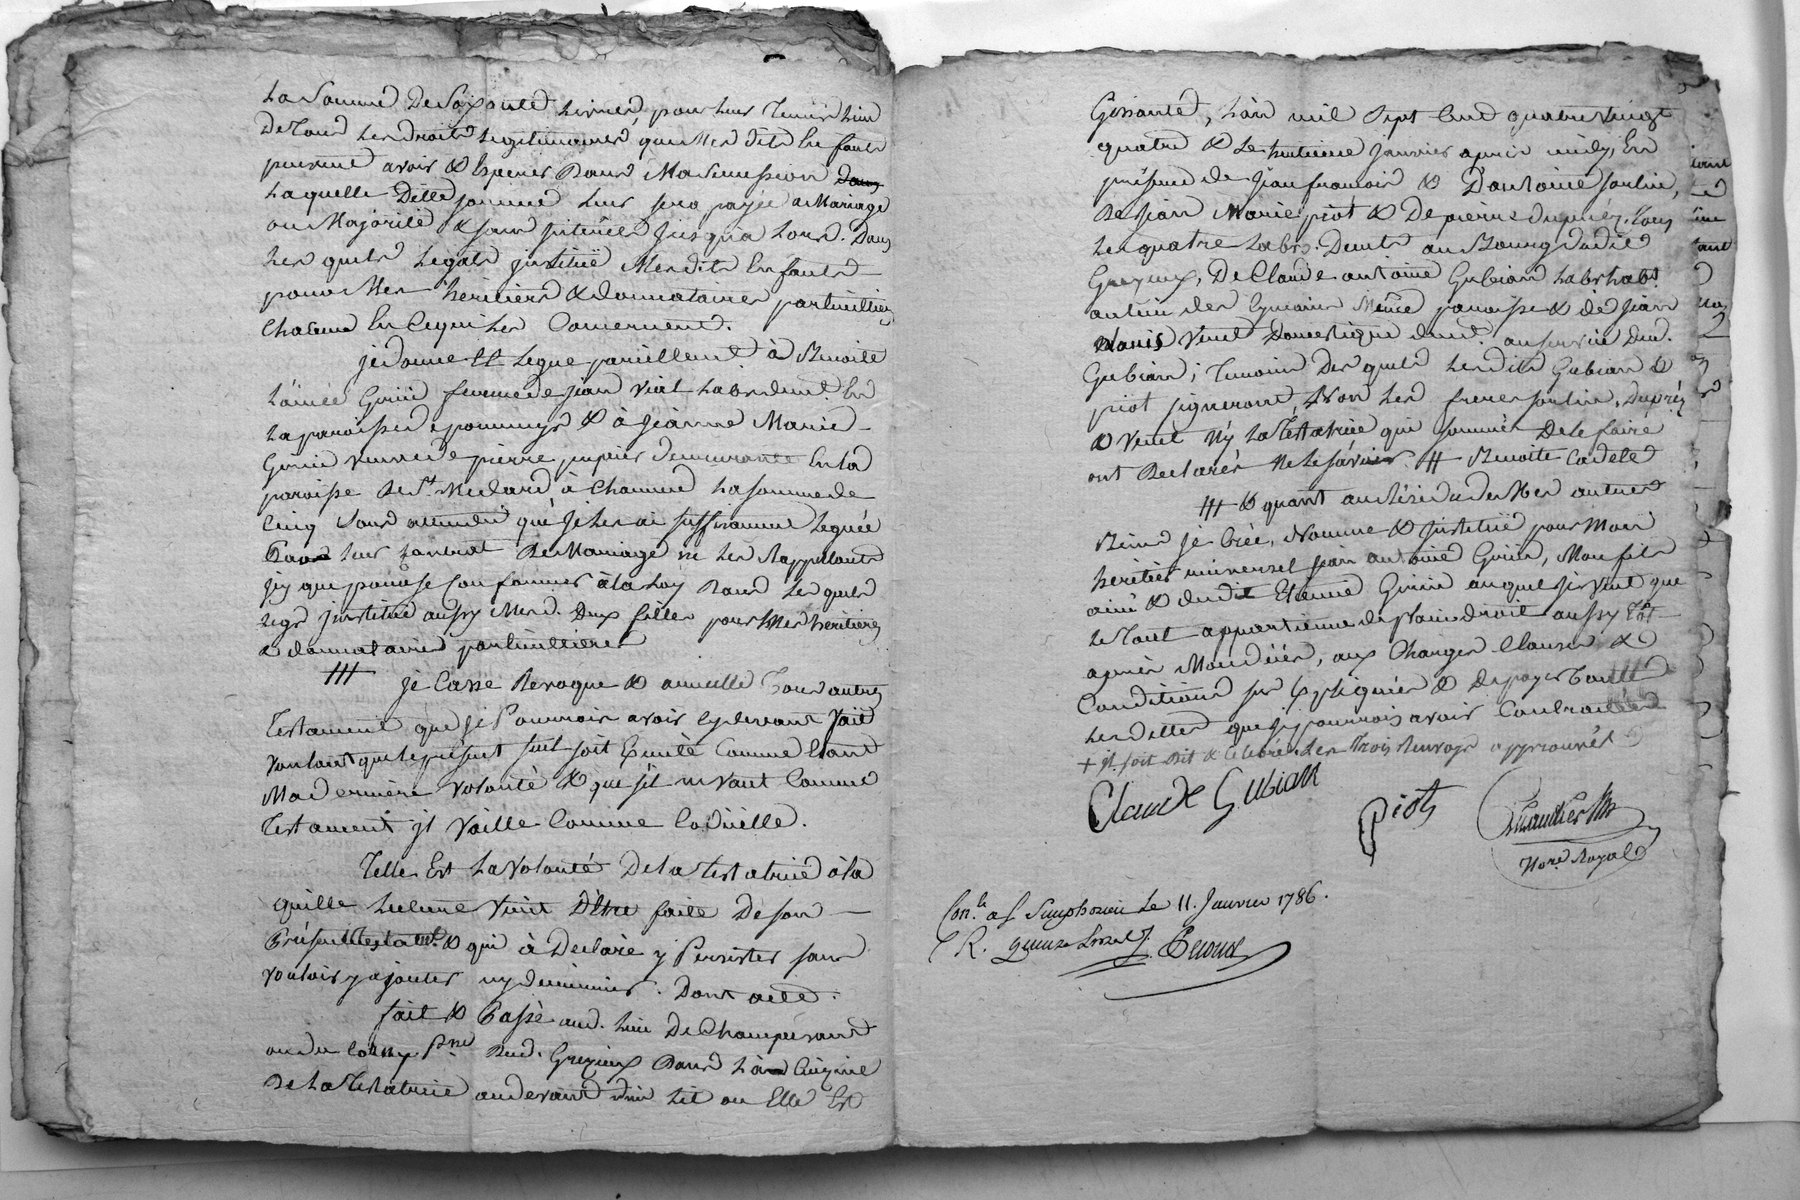 La Somme De Soixante livres, pour leur Tenir lieu
De Tous les droits legitimaires que Mes dits Enfants
peuvent avoir & Esperer Dans Ma Succession
Laquelle Ditte somme leur sera payée a Mariage
ou Majorité & sans interêts jusqu'a Lors. Dans
Les quels legats institüe Mesdits Enfants
pour Mes heritiers & donnataires particulliers
Chacun En Ce qui les Concernent.
je donne Et Legue pareillement à Benoite
L'ainée Grüie femme de jean Vial Lab. demt. En
La paroisse de pommeys & à jeanne Marie
Grüie veuve de pierre pupier demeurante En la
paroisse de St. Medard, à Chacune La somme de
Cinq Sous attendu que je les ai suffisamment Leguée
Dans leur Contrat De Mariage ne Les Rappellant
jcy que pour se Conformer à la Loy Dans Les quels
legs Institüe aussy Mesd. Deux filles pour Mes heritieres
& donnataires particullieres
### je Casse Revoque & annulle Tous autres
Testament que je Pourrois avoir Cy devant Fait
voulant que le présent seul soit Exécuté Comme Etant
Ma derniere volonté & que s'il ne Vaut Comme
Testament jl Vaille Comme Codicille.
Telle Est La Volonté De la Testatrice à la
quelle Lecture Vient D'être faite De son
Présent Testamt. & qui à Declaré y Persister sans
vouloir y ajouter ny diminuer. Dont acte.
fait & Passé aud. lieu De Champérant
ou du Cosny Psse Dud. Grezieux Dans la Cuizine
De La Testatrice au devant d'un lit ou Elle Est
Gissante, L'an mil Sept Cent quatre vingt
quatre & Le huitieme janvier après midy, En
présence de jean francois & D'antoine joulin,
De jean Marie piot & De pierre dupuéz, Tous
Les quatre Labrs. Demts au Bourg dudit
Grezieux, De Claude antoine Gubian Labr habt.
au lieu des Même paroisse & de jean
Venet Domestique demt. au service dud.
Gubian; Temoins Des quels Lesdits Gubian &
piot signeront, Non Les freres joulin, Dupréz
& Venet N'y La Testatrice qui sommés De le faire
ont Declarés Ne le sávoir. # Benoite Cadete
### & quant au Résidu de Mes autres
Biens je Crée, Nomme & Institüe pour Mon
heritier universel jean antoine Grüie, Mon fils
ainé & dudit Etienne Grüie auquel je veut que
Le Tout appartienne de plain droit aussy Tôt
après Mon décès, aux Charges Clauses &
Conditions sus Expliquées & De payer Toutes
Les dettes que je pourrois avoir Contractées
+ jl soit dit & Celebré Les Trois Renvoys approuvés
Claude Gubian
piot
Not. Royal
Con.lé a S. Simphorien Le 11. Janvier 1786.
R. quinze